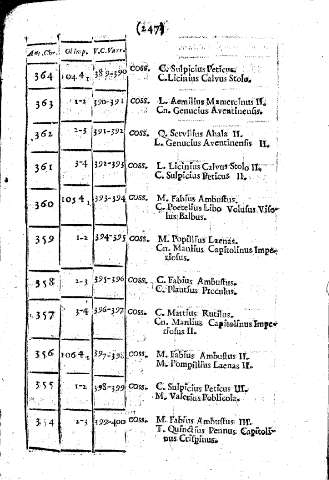 (247)
Ant. Chr. Olimp. V.C. Varr.
364 104.4, 389-390 COSS. C. Sulpicius Peticus.
C. Licinius Calvus Stolo.
363 1-2 390-391 COSS. L. Aemilius Mamercinus II.
Cn. Genucius Aventinensis.
362 2-3 391-392 COSS. Q. Servilius Ahala II.
L. Genucius Aventinensis II.
361 3-4 392-393 COSS. L. Licinius Calvus Stolo II.
C. Sulpicius Peticus II.
360 105 4, 393-394 COSS. M. Fabius Ambustus.
C. Poetelius Libo Volusus Viso-
lus Balbus.
359 1-2 394-395 COSS. M. Popilius Laenas.
Cn. Manlius Capitolinus Impe-
riosus.
358 2-3 395-396 COSS. C. Fabius Ambustus.
C. Plautius Proculus.
357 3-4 396-397 COSS. C. Martius Rutilus.
Cn. Manlius Capitolinus Impe-
riosus II.
356 106 4, 397-398 COSS. M. Fabius Ambustus II.
M. Pompilius Laenas II.
355 1-2 398-399 COSS. C. Sulpicius Peticus III.
M. Valerius Publicola.
354 2-3 399-400 COSS. M. Fabius Ambustus III.
T. Quinctius Pennus Capitoli-
nus Crispinus.